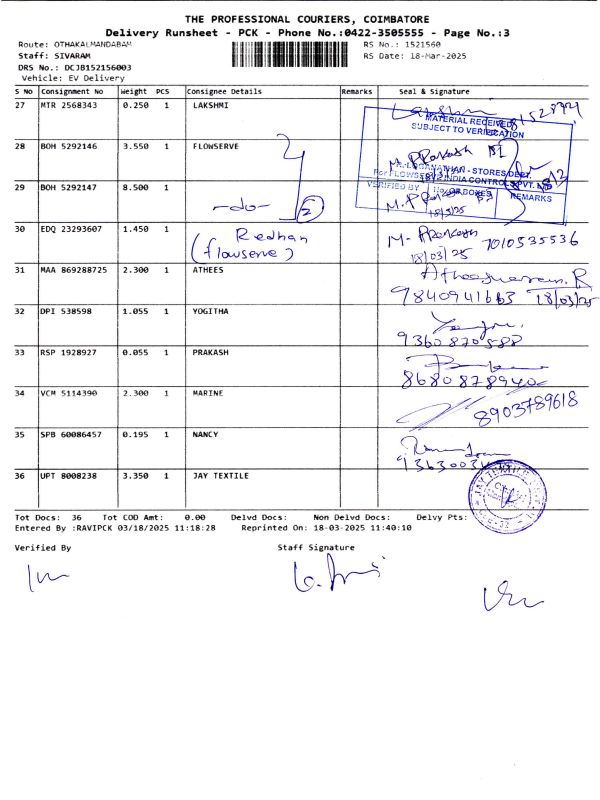 THE PROFESSIONAL COURIERS, COIMBATORE
Delivery Runsheet - PCK - Phone No.:0422-3505555 - Page No.:3
Route: OTHAKALMANDABAM RS No.: 1521560
Staff: SIVARAM RS Date: 18-Mar-2025
DRS No.: DCJB1521560003
Vehicle: EV Delivery
S No Consignment No Weight PCS Consignee Details Remarks Seal & Signature
27 MTR 2568343 0.250 1 LAKSHMI
MATERIAL RECEIVED
SUBJECT TO VERIFICATION
28 BOH 5292146 3.550 1 FLOWSERVE M. PRakash
- STORES DEPT.
For FLOWSERVE INDIA CONTROLS PVT. LTD
VERIFIED BY No. OF BOXES REMARKS
29 BOH 5292147 8.500 1 -do- 2 M. P Prakash
18/3/25
30 EDQ 23293607 1.450 1 Redhan M- PRakash 7010535536
(flowserve) 18/03/25
31 MAA 869288725 2.300 1 ATHEES R
9840941663 18/03/25
32 DPI 538598 1.055 1 YOGITHA
9360870588
33 RSP 1928927 0.055 1 PRAKASH
8680878940
34 VCM 5114390 2.300 1 MARINE 8903789618
35 SPB 60086457 0.195 1 NANCY
36 UPT 8008238 3.350 1 JAY TEXTILE
Tot Docs: 36 Tot COD Amt: 0.00 Delvd Docs: Non Delvd Docs: Delvy Pts:
Entered By :RAVIPCK 03/18/2025 11:18:28 Reprinted On: 18-03-2025 11:40:10
Verified By Staff Signature